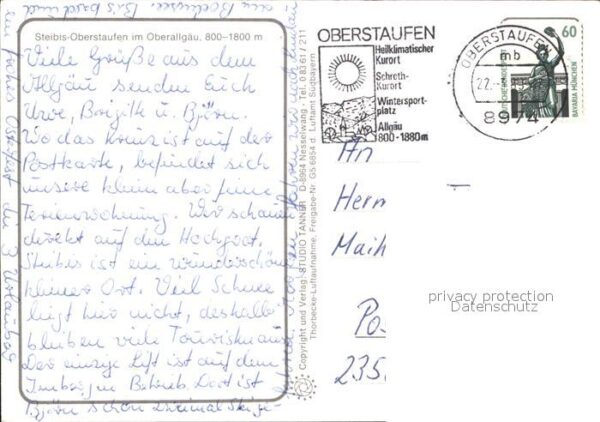 Steibis-Oberstaufen im Oberallgäu, 800–1800 m
Viele Grüße aus dem
Allgäu senden Euch
Uwe, Birgitt u. Björn.
Wo das Kreuz ist auf der
Postkarte, befindet sich
unsere klein aber feine
Ferienwohnung. Wir schauen
direkt auf den Hochgrat.
Steibis ist ein wunderschöner
kleiner Ort. Viel Schnee
liegt hier nicht, deshalb
bleiben viele Touristen aus.
Der einzige Lift ist auf dem
Imberg in Betrieb. Dort ist
Björn schon zweimal Ski ge-
fahren.
am Bodensee. Bis bald und
ein frohes Osterfest die 3 Urlauber
Copyright und Verlag: STUDIO TANNER · D-8964 Nesselwang · Tel. 08361/211
Thorbecke-Luftaufnahme, Freigabe-Nr. G5/6854 d Luftamt Südbayern
OBERSTAUFEN
Heilklimatischer
Kurort
Schroth-
Kurort
Wintersport-
platz
Allgäu
800-1880m
OBERSTAUFEN
mb
8974
60
BAVARIA MÜNCHEN
An
Herm
Maih
Po
235
privacy protection
Datenschutz